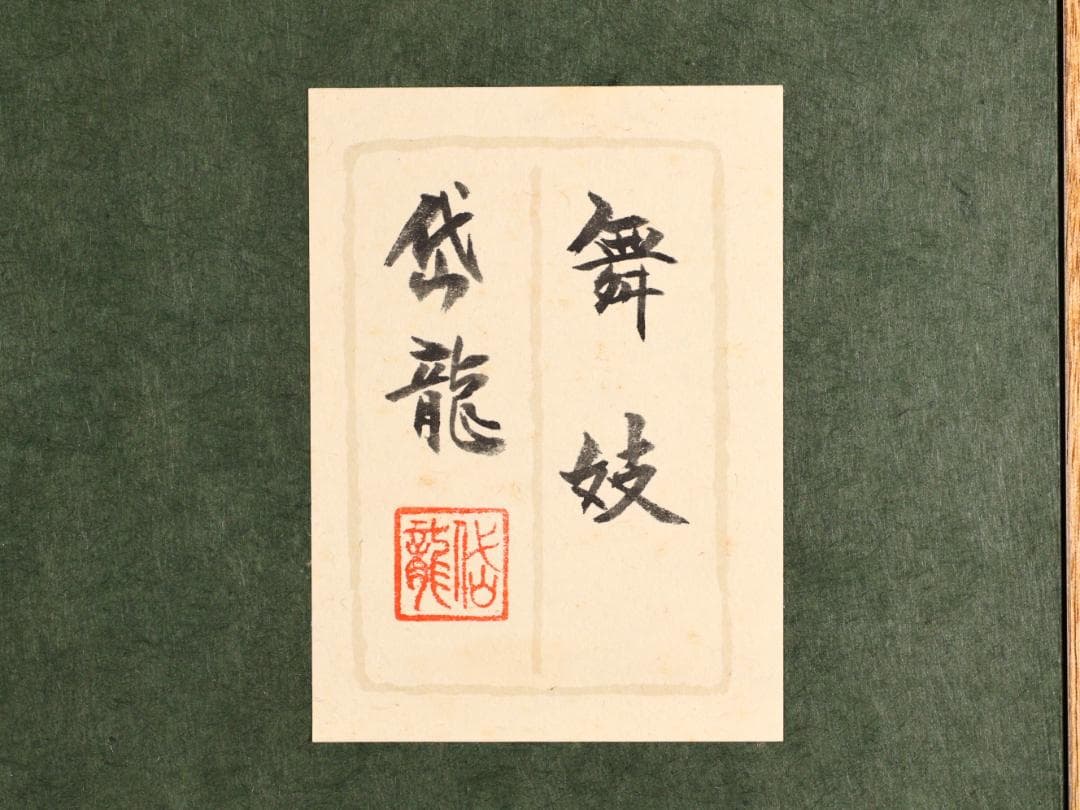 舞妓
岱龍
岱龍